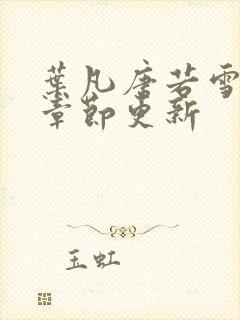 葉凡唐若雪
章節更新
玉虹